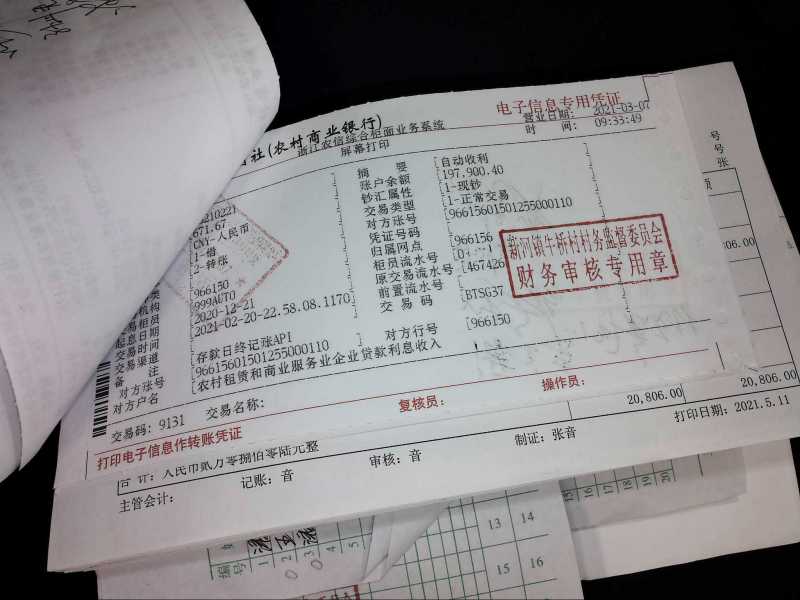 电子信息专用凭证
社(农村商业银行)
浙江农信综合柜面业务系统
营业日期: 2021-03-07
屏幕打印
时 间: 09:33:49
摘 要 [自动收利
账户余额 [197,900.40
钞汇属性 [1-现钞
交易类型 [1-正常交易
对方账号 [96615601501255000110
凭证号码
归属网点 [966156
柜员流水号
原交易流水号 [467426
前置流水号
交 易 码 [BTSG37
对方行号 [966150
671.67
CNY-人民币
1-借
2-转账
966150
999AUTO
起息日期 [2020-12-21
交易时间 [2021-02-20-22.58.08.1170]
交易渠道
备 注 [存款日终记账API
对方账号 [96615601501255000110
对方户名 [农村租赁和商业服务业企业贷款利息收入
新河镇牛桥村村务监督委员会
财务审核专用章
交易码: 9131
交易名称:
复核员:
操作员:
打印电子信息作转账凭证
20,806.00
20,806.00
合 计: 人民币贰万零捌佰零陆元整
打印日期: 2021.5.11
主管会计:
记账: 音
审核: 音
制证: 张音
号
号
张
06.00
编号
1
2
3
4
5
13
14
15
16
15
16
17
18
19
20